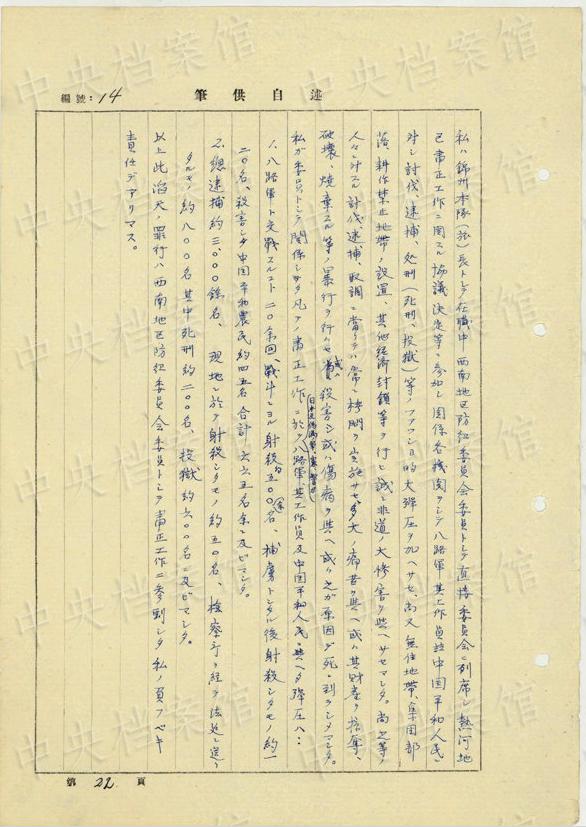 編號：14
述自供筆
私ハ錦州本隊（旅）長トシテ在職中 西南地区防衛委員会委員トシテ直接委員会ニ列席シ熱河地
己粛正工作ニ関スル協議決定等ニ参加シ関係各機関ヲシテ八路軍其工作員並中国平和人民ニ
対シ討伐、逮捕、処刑（死刑、投獄）等ノファッショ的大弾圧ヲ加ヘサセ、尚又無住地帯、集団部
落、耕作禁止地帯ノ設置、其他経済封鎖等ヲ行ヒ誠ニ非道ノ大惨害ヲ与ヘサセマシタ。尚之等ノ
人々ニ対スル討伐、逮捕、取調ニ当リテハ常ニ拷問ヲ実施サセ、多大ノ痛苦ヲ与ヘ或ハ其財産ヲ掠奪、
破壊、焼棄スル等ノ暴行ヲ行ハセ或ハ殺害シ或ハ傷病ヲ与ヘ或ハ之ガ原因デ死ニ到ラシメマシタ。
私ガ委員トシテ関係シマシタ凡テノ粛正工作ニ於テ八路軍、其工作員及中国平和人民ニ与ヘタ弾圧ハ…
1．八路軍ト交戦スルコト二〇余回、戦斗ニヨル射殺約五〇〇名余、捕虜トシタル後射殺シタモノ約一
二〇名、殺害シタ中国平和農民約四五名合計六六五名余ニ及ビマシタ。
2．総逮捕約三、〇〇〇余名、現地ニ於テ射殺シタモノ約五〇名、検察庁ヲ経テ法処ニ送リ
タルモノ約八〇〇名其中死刑約二〇〇名、投獄約六〇〇名ニ及ビマシタ。
以上此滔天ノ罪行ハ西南地区防衛委員会委員トシテ粛正工作ニ参劃シタ私ノ負フベキ
責任デアリマス。
第22頁
中央档案馆